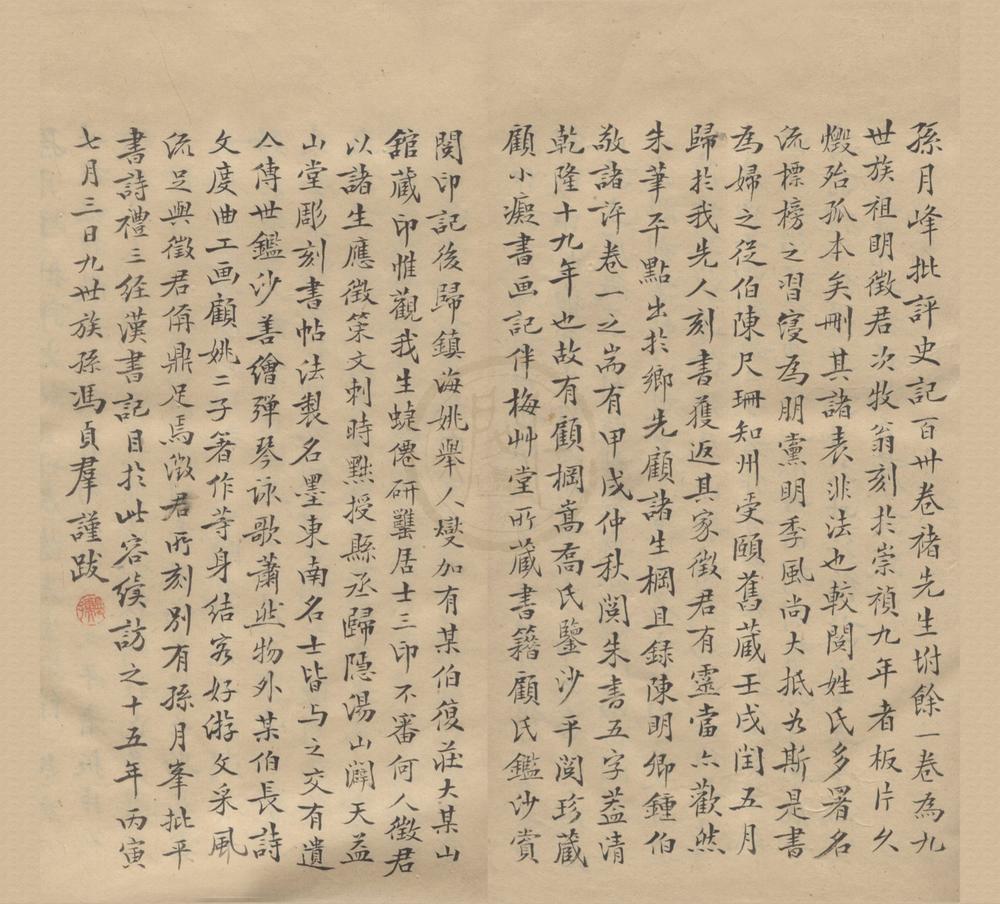 孫月峰批評史記百卅卷褚先生坿餘一卷為九
世族祖明徵君次牧翁刻於崇禎九年者板片久
燬殆孤本矣刪其諸表非法也較閱姓氏多署名
流標榜之習寖為朋黨明季風尚大抵尔斯是書
為婦之從伯陳尺珊知州受頤舊藏壬戌閏五月
歸於我先人刻書獲返其家徵君有靈當亦歡然
朱筆平點出於鄉先顧諸生棡且録陳明卿鍾伯
敬諸評卷一之耑有甲戌仲秋閱朱書五字葢清
乾隆十九年也故有顧棡嵩喬氏鑒沙平閱珍藏
顧小癡書画記伴梅艸堂所藏書籍顧氏鑑沙賞
閱印記後歸鎮海姚舉人燮加有某伯復莊大某山
舘藏印惟觀我生蜨僊研讐居士三印不審何人徵君
以諸生應徵策文刺時黜授縣丞歸隱湯山闢天益
山堂彫刻書帖法製名墨東南名士皆与之交有遺
亼傳世鑑沙善繪彈琴詠歌蕭然物外某伯長詩
文度曲工画顧姚二子著作等身結客好游文采風
流足與徵君侢鼎足焉徵君所刻別有孫月峯批平
書詩禮三經漢書記目於此容續訪之十五年丙寅
七月三日九世族孫馮貞羣謹跋